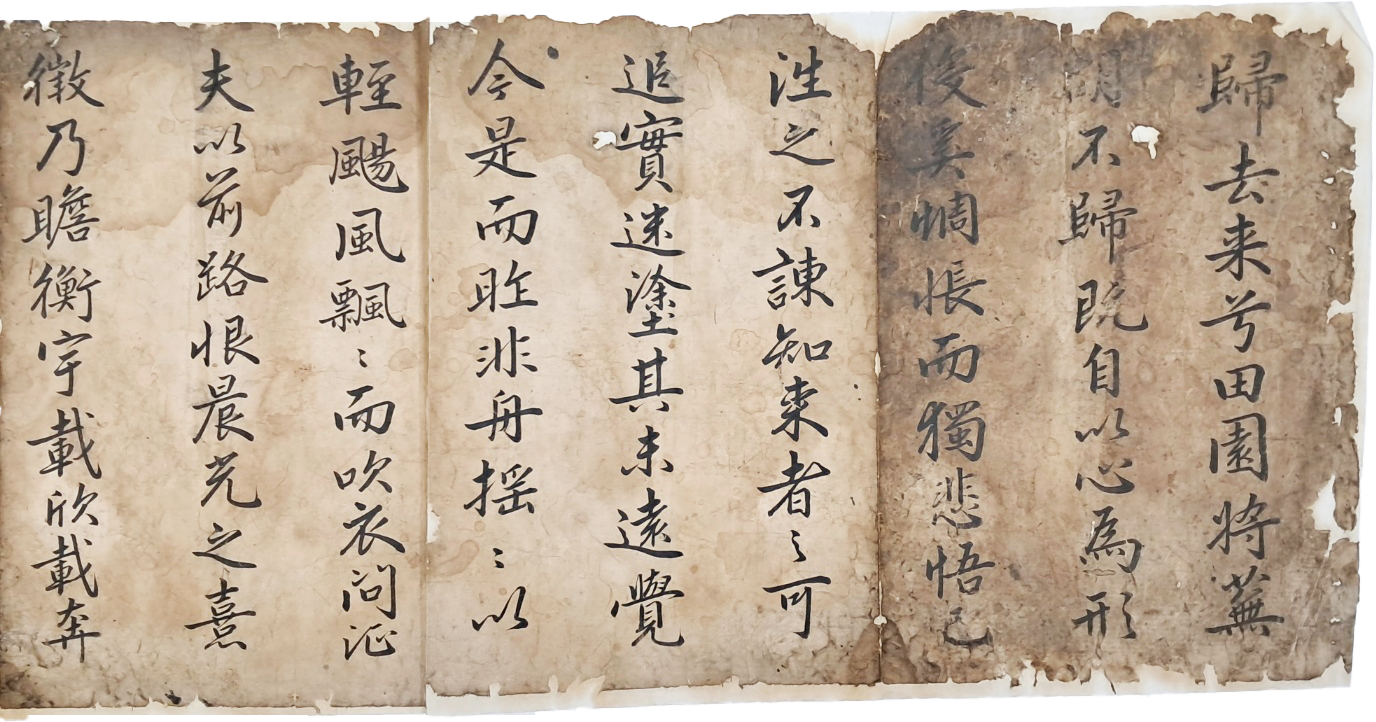 歸去来兮田園将蕪
胡不歸既自以心為形
役奚惆悵而獨悲悟已
往之不諫知来者〻可
追實迷塗其未遠覺
今是而昨非舟揺〻以
輕颺風飄〻而吹衣问征
夫以前路恨晨光之熹
微乃瞻衡宇載欣載奔